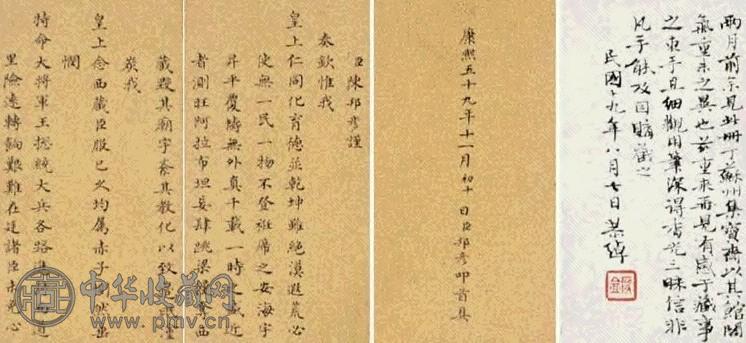 臣陳邦彥謹
奏欽惟我
皇上仁同化育德並乾坤雖絕漠遐荒必
使無一民一物不登袵席之安海宇
昇平覆幬無外真千載一時之盛近
者測旺阿拉布坦妄肆跳梁西
藏毀其廟宇紊其教化以致
廑我
皇上念西藏臣服已久均屬赤子惻然
憫
特命大將軍王總統大兵各路進
里險遠轉餉艱難在廷諸臣未免心
康熙五十九年十一月初十日臣邦彥叩首具
兩月前余見此冊于蘇州集寶齋以其館閣
氣重未之異也茲重來再見有感于藏事
之東于且細觀用筆深得香光三昧信非
凡手能及因購藏之
民國十九年八月七日
中华收藏网
www.pmcv.cn